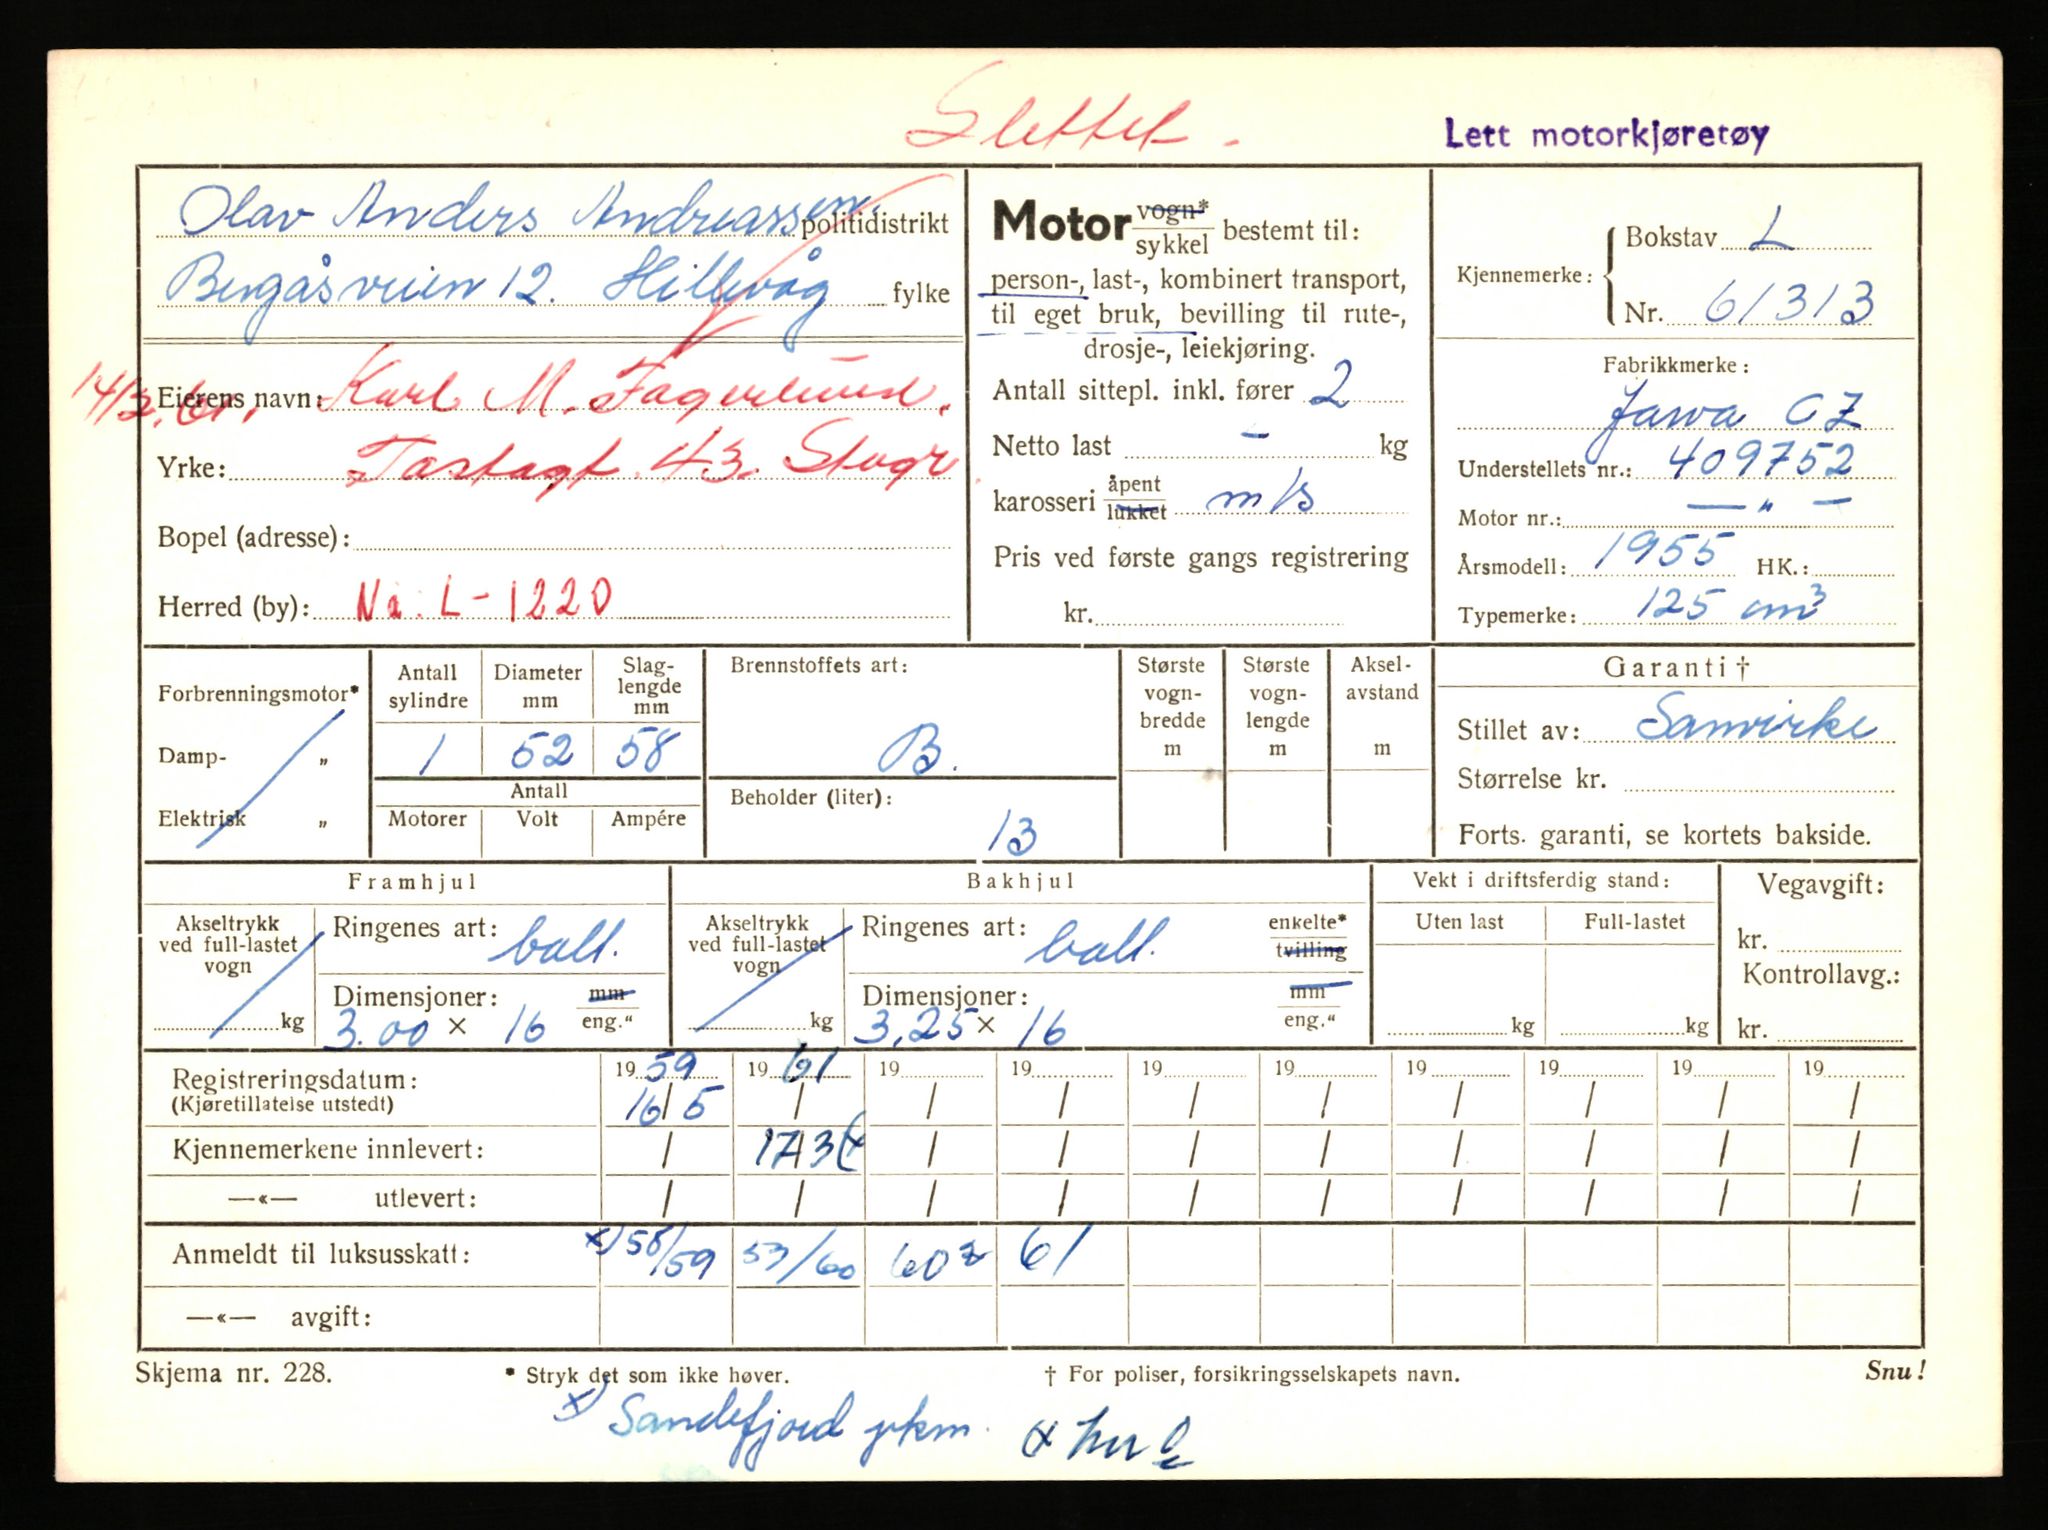 Slettet.
Lett motorkjøretøy
Olav Anders Andreassen politidistrikt
Bergåsveien 12. Hillevåg fylke
14/3.61. Eierens navn: Karl M. Fagerlund.
Yrke: Tastagt. 43. Stvgr
Bopel (adresse):
Herred (by): Nå: L-1220
Motor vogn* sykkel bestemt til:
person-, last-, kombinert transport,
til eget bruk, bevilling til rute-,
drosje-, leiekjøring.
Antall sittepl. inkl. fører 2
Netto last - kg
karosseri åpent lukket m/s
Pris ved første gangs registrering
kr.
Kjennemerke: Bokstav L
Nr. 61313
Fabrikkmerke:
Jawa CZ
Understellets nr.: 409752
Motor nr.: — " —
Årsmodell: 1955 HK.:
Typemerke: 125 cm³
Forbrenningsmotor*
Damp- „
Elektrisk „
Antall sylindre Diameter mm Slag-lengde mm
1 52 58
Antall
Motorer Volt Ampére
Brennstoffets art:
B.
Beholder (liter):
13
Største vogn-bredde m
Største vogn-lengde m
Aksel-avstand m
Garanti †
Stillet av: Samvirke
Størrelse kr.
Forts. garanti, se kortets bakside.
Framhjul
Akseltrykk ved full-lastet vogn
kg
Ringenes art: ball.
Dimensjoner: mm
3.00 × 16 eng."
Bakhjul
Akseltrykk ved full-lastet vogn
kg
Ringenes art: ball. enkelte* tvilling
Dimensjoner: mm
3,25 × 16 eng."
Vekt i driftsferdig stand:
Uten last Full-lastet
kg kg
Vegavgift:
kr.
Kontrollavg.:
kr.
Registreringsdatum: 1959 1961 19 19 19 19 19 19 19 19
(Kjøretillatelse utstedt) 16/5 / / / / / / / / /
Kjennemerkene innlevert: / 17/3 (x / / / / / / / /
—«— utlevert: / / / / / / / / / /
Anmeldt til luksusskatt: x) 58/59 53/60 60² 61
—«— avgift:
Skjema nr. 228. * Stryk det som ikke høver. † For poliser, forsikringsselskapets navn. Snu!
x) Sandefjord pkm.